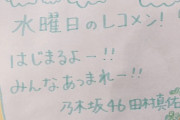 水曜日のレコメン!
はじまるよー!!
みんなあつまれー!!
乃木坂46田村真佑